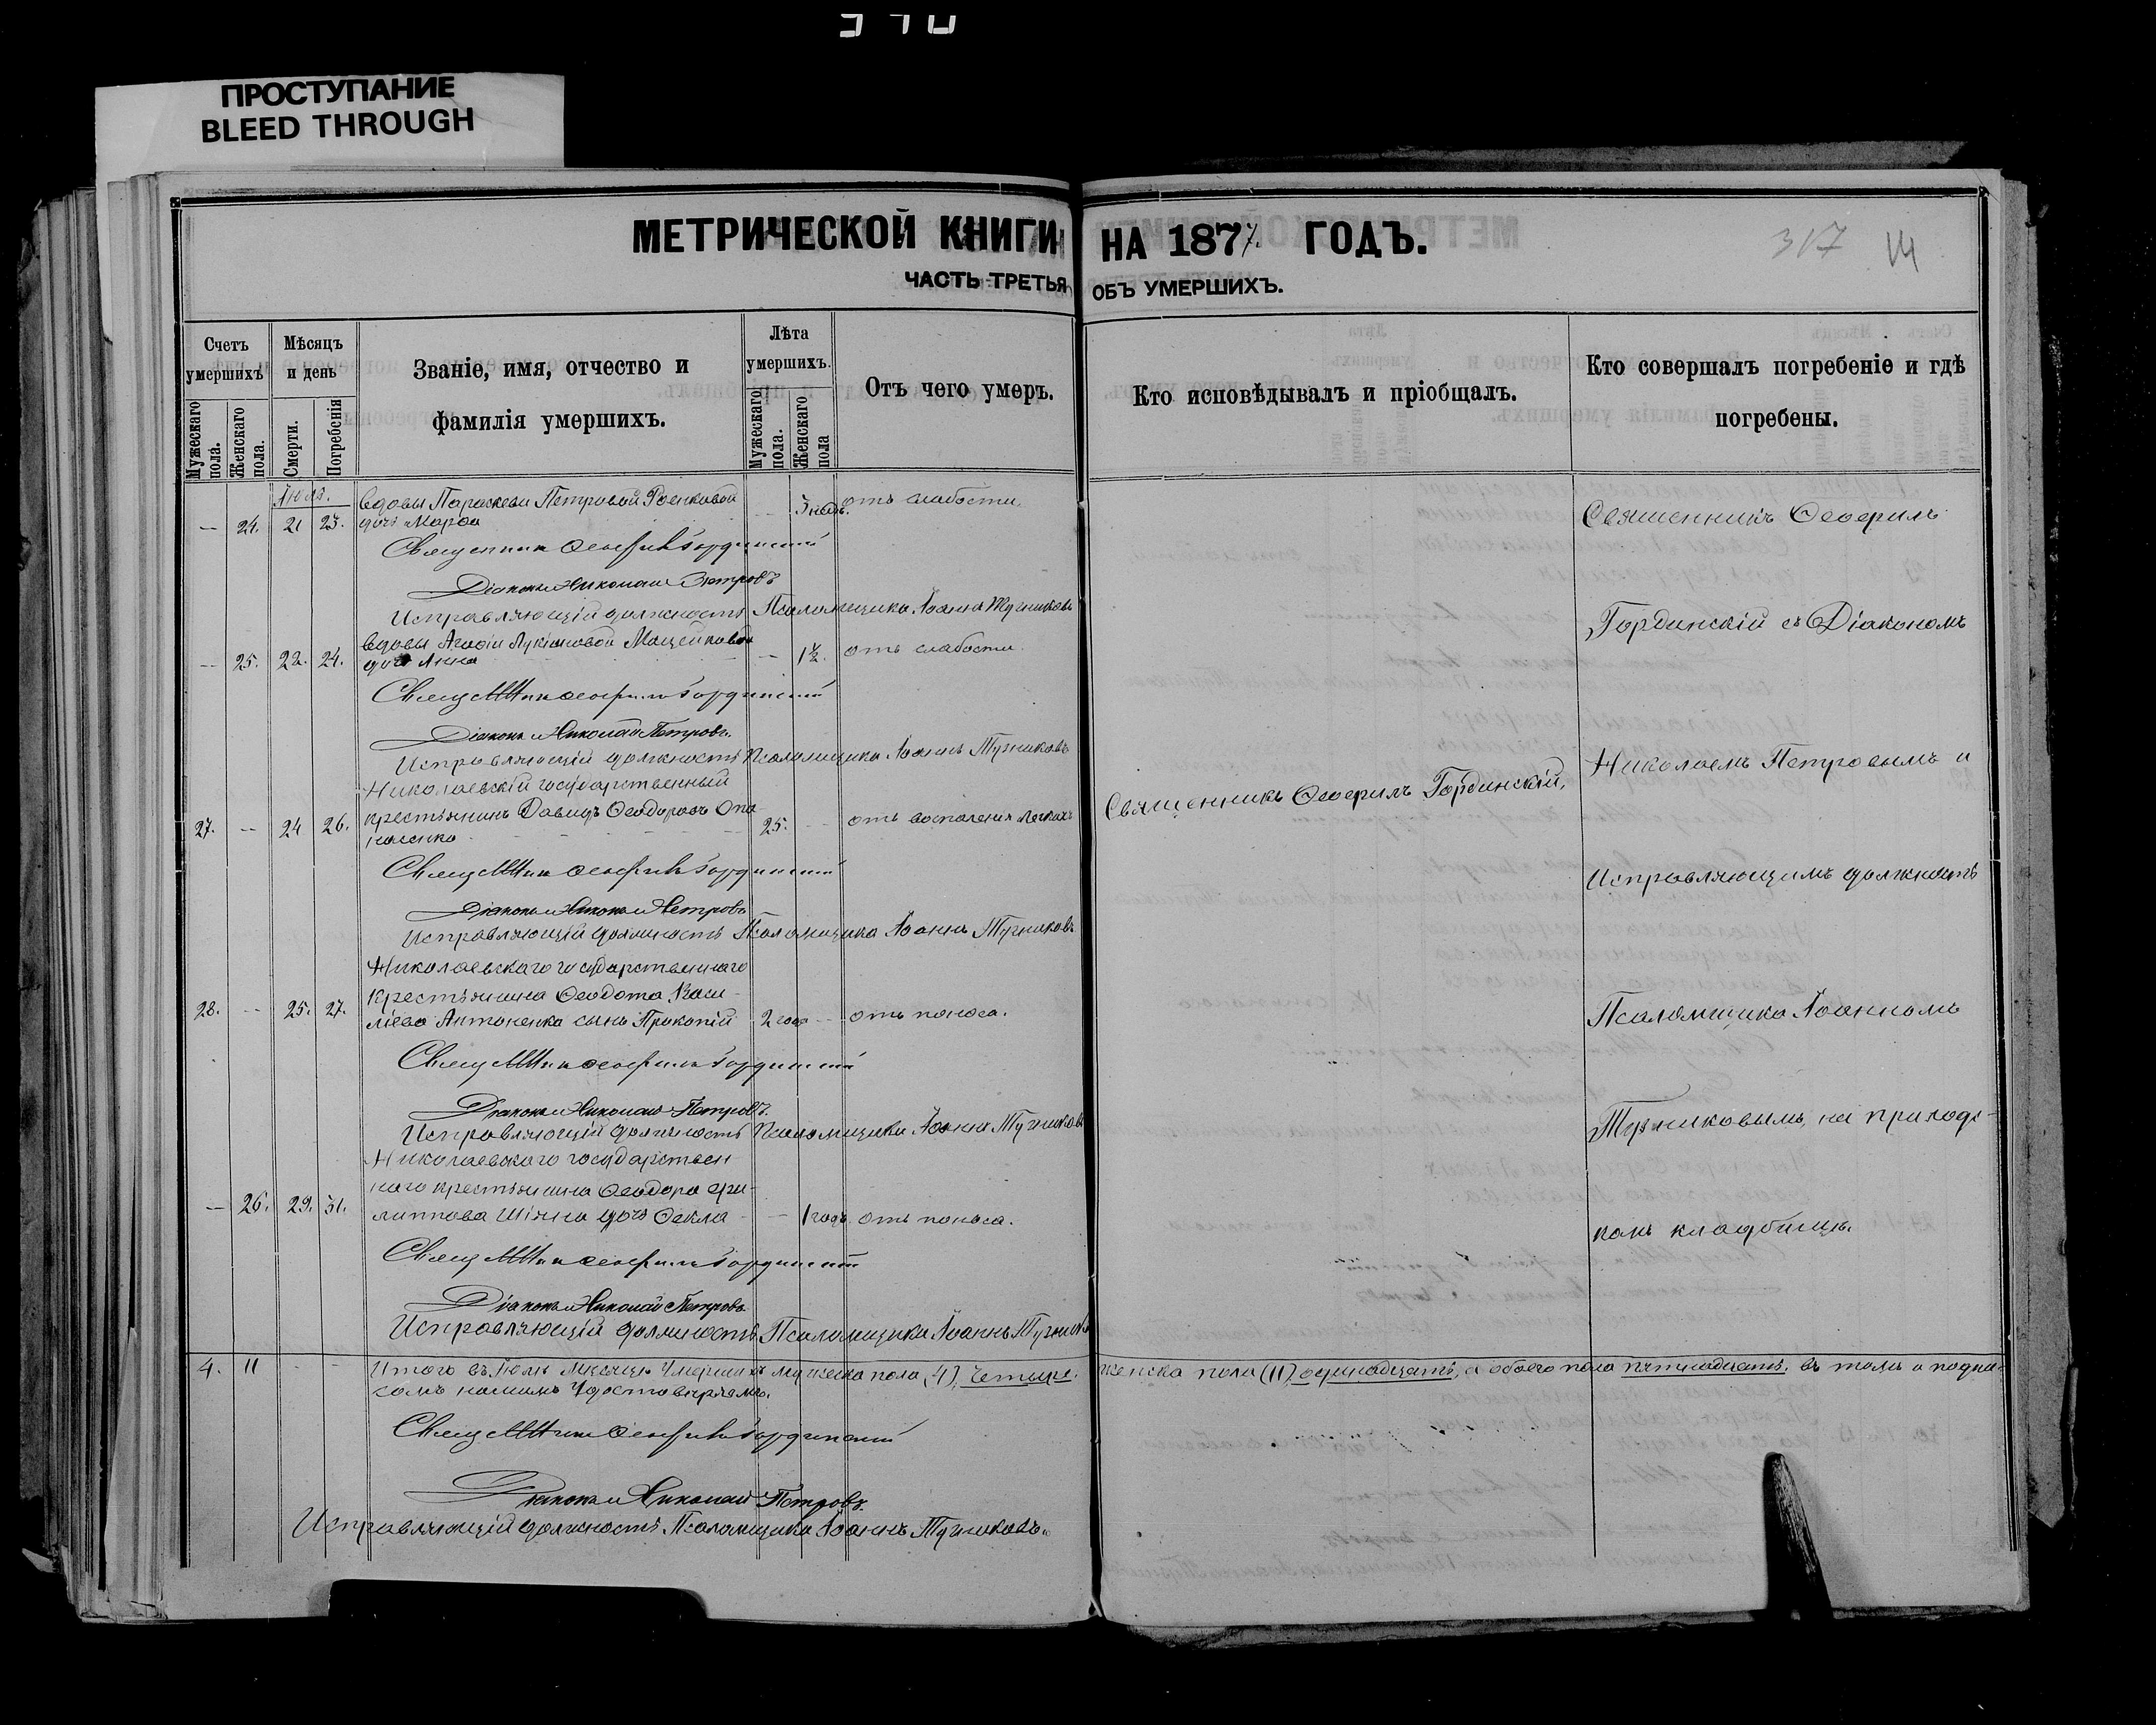 ПРОСТУПАНИЕ
BLEED THROUGH
МЕТРИЧЕСКОЙ КНИГИ НА 1877. ГОДЪ.
317
ЧАСТЬ ТРЕТЬЯ ОБЪ УМЕРШИХЪ.
Счетъ умершихъ
Мужескаго пола.
Женскаго пола.
Мѣсяцъ и день
Смерти.
Погребенія
Званіе, имя, отчество и фамилія умершихъ.
Лѣта умершихъ.
Мужескаго пола.
Женскаго пола
Отъ чего умеръ.
Кто исповѣдывалъ и пріобщалъ.
Кто совершалъ погребеніе и гдѣ погребены.
Іюля.
вдовы Параскеви Петровой
— 24. 21 23. дочь Марѳа — 3 нед. отъ слабости.
Священникъ Ѳеофилъ Гординскій
Діаконъ Николай Петровъ
Исправляющій должность Псаломщика Іоаннъ Тучниковъ
вдовы Агаѳіи Лукіановой
— 25. 22. 24. дочь Анна — 1½. отъ слабости.
Священникъ Ѳеофилъ Гординскій
Діаконъ Николай Петровъ.
Исправляющій должность Псаломщика Іоаннъ Тучниковъ
Николаевскій государственный
27. — 24 26. крестьянинъ Давидъ Ѳеодоровъ Опа
насенко 25. — отъ воспаленія легкихъ
Священникъ Ѳеофилъ Гординскій,
Священникъ Ѳеофилъ Гординскій
Діаконъ Николай Петровъ
Исправляющій должность Псаломщика Іоаннъ Тучниковъ
Николаевскаго государственнаго
крестьянина Ѳеодота Васи-
28. — 25. 27. ліева Антоненка сынъ Прокопій 2 года — отъ поноса.
Священникъ Ѳеофилъ Гординскій
Діаконъ Николай Петровъ.
Исправляющій должность Псаломщика Іоаннъ Тучниковъ
Николаевскаго государствен
наго крестьянина Ѳеодора Фи-
— 26. 29. 31. липпова дочь Ѳекла — 1 годъ отъ поноса.
Священникъ Ѳеофилъ Гординскій
Діаконъ Николай Петровъ
Исправляющій должность Псаломщика Іоаннъ Тучниковъ
Священникъ Ѳеофилъ
Гординскій съ Діакономъ
Николаемъ Петровымъ и
Исправляющимъ должность
Псаломщика Іоанномъ
Тучниковымъ, на приходс-
комъ кладбищѣ.
4. 11 — — Итого въ Іюлѣ Мѣсяцѣ Умершихъ мужеска пола (4), четыре. женска пола (11) одинадцать, а обоего пола пятнадцать. въ томъ и подпи-
сомъ нашимъ удостовѣряемъ.
Священникъ Ѳеофилъ Гординскій
Діаконъ Николай Петровъ.
Исправляющій должность Псаломщика Іоаннъ Тучниковъ.